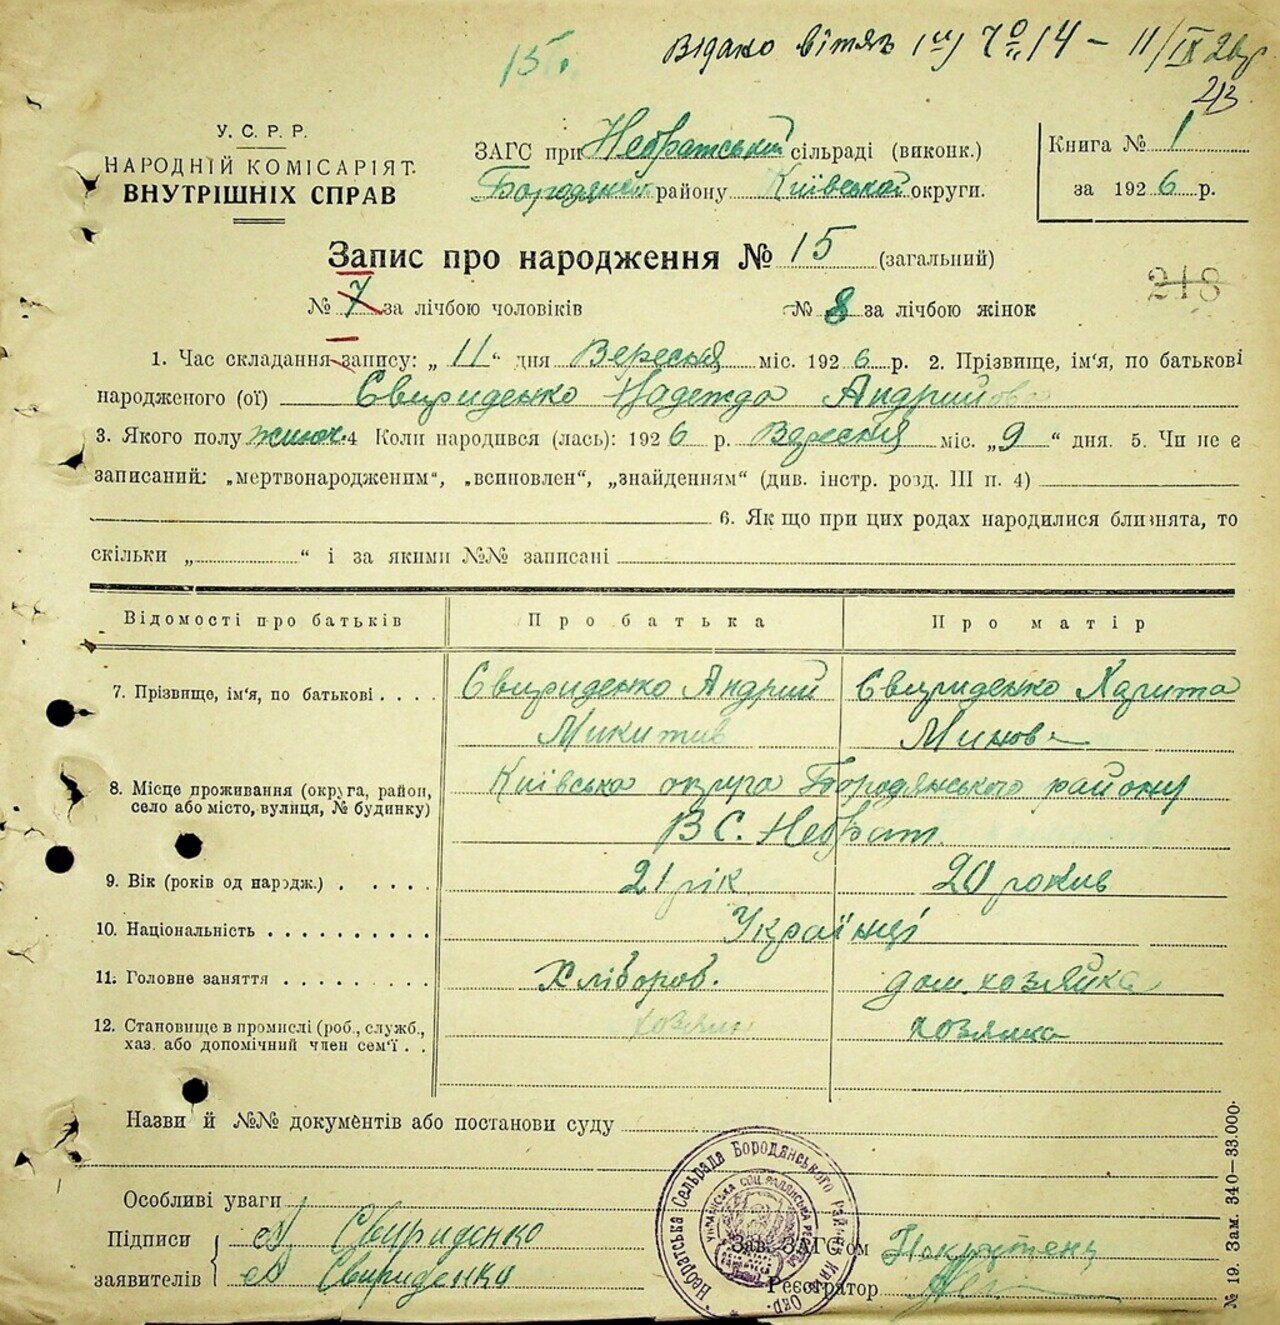 15
Відано вітяг № 14 - 11/IX 26 р
213
У. С. Р. Р.
НАРОДНІЙ КОМІСАРІЯТ
ВНУТРІШНІХ СПРАВ
ЗАГС при Небратський сільраді (виконк.)
Бородянськ району Київської округи.
Книга № 1
за 1926 р.
Запис про народження № 15 (загальний)
218
№ 7 за лічбою чоловіків № 8 за лічбою жінок
1. Час складання запису: „ 11 “ дня Вересня міс. 1926 р. 2. Прізвище, ім'я, по батькові
народженого (ої) Свириденко Надежда Андрийовна
3. Якого полу жіноч. 4 Коли народився (лась): 1926 р. Вересня міс. „ 9 “ дня. 5. Чи не є
записаний: „мертвонародженим“, „всиновлен“, „знайденням“ (див. інстр. розд. III п. 4)
6. Як що при цих родах народилися близнята, то
скільки „ “ і за якими №№ записані
Відомості про батьків Про батька Про матір
7. Прізвище, ім'я, по батькові . . . . Свириденко Андрий Свириденко Харита
Микитив Минова
8. Місце проживання (округа, район, село або місто, вулиця, № будинку) Київська округа Бородянського району
В С. Небрат.
9. Вік (років од народж.) . . . . . 21 рік 20 років
10. Національність . . . . . . . . . . Українці
11. Головне заняття . . . . . . . . . Хлібороб. дом. хозяйка
12. Становище в промислі (роб., служб., хаз. або допомічний член сем'ї . . хозяин хозяйка
Назви й №№ документів або постанови суду
Особливі уваги
Підписи заявителів
Свириденко
Свириденко
Небратська Сельрада Бородянського Району Київ. Окр.
УКРАЇНСЬКА СОЦ. РАДЯНСЬКА РЕСПУБЛІКА
Зав. ЗАГС'ом
Реєстратор
№ 19. Зам. 340—33.000.